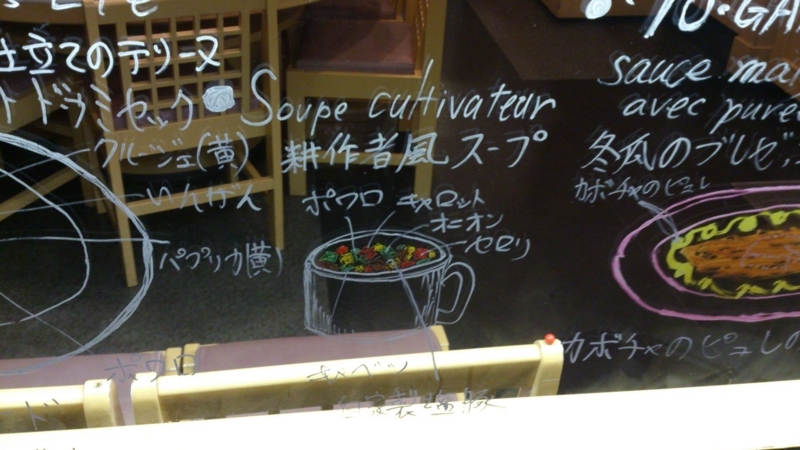 仕立てのテリーヌ
ドゥミセック
クルージェ(黄)
いんげん
パプリカ(黄)
ポワロ
Soupe cultivateur
耕作者風スープ
ポワロ キャロット
オニオン
セロリ
キャベツ
自家製塩豚
sauce
avec
冬瓜のブレゼ
カボチャのピュレ
カボチャのピュレの